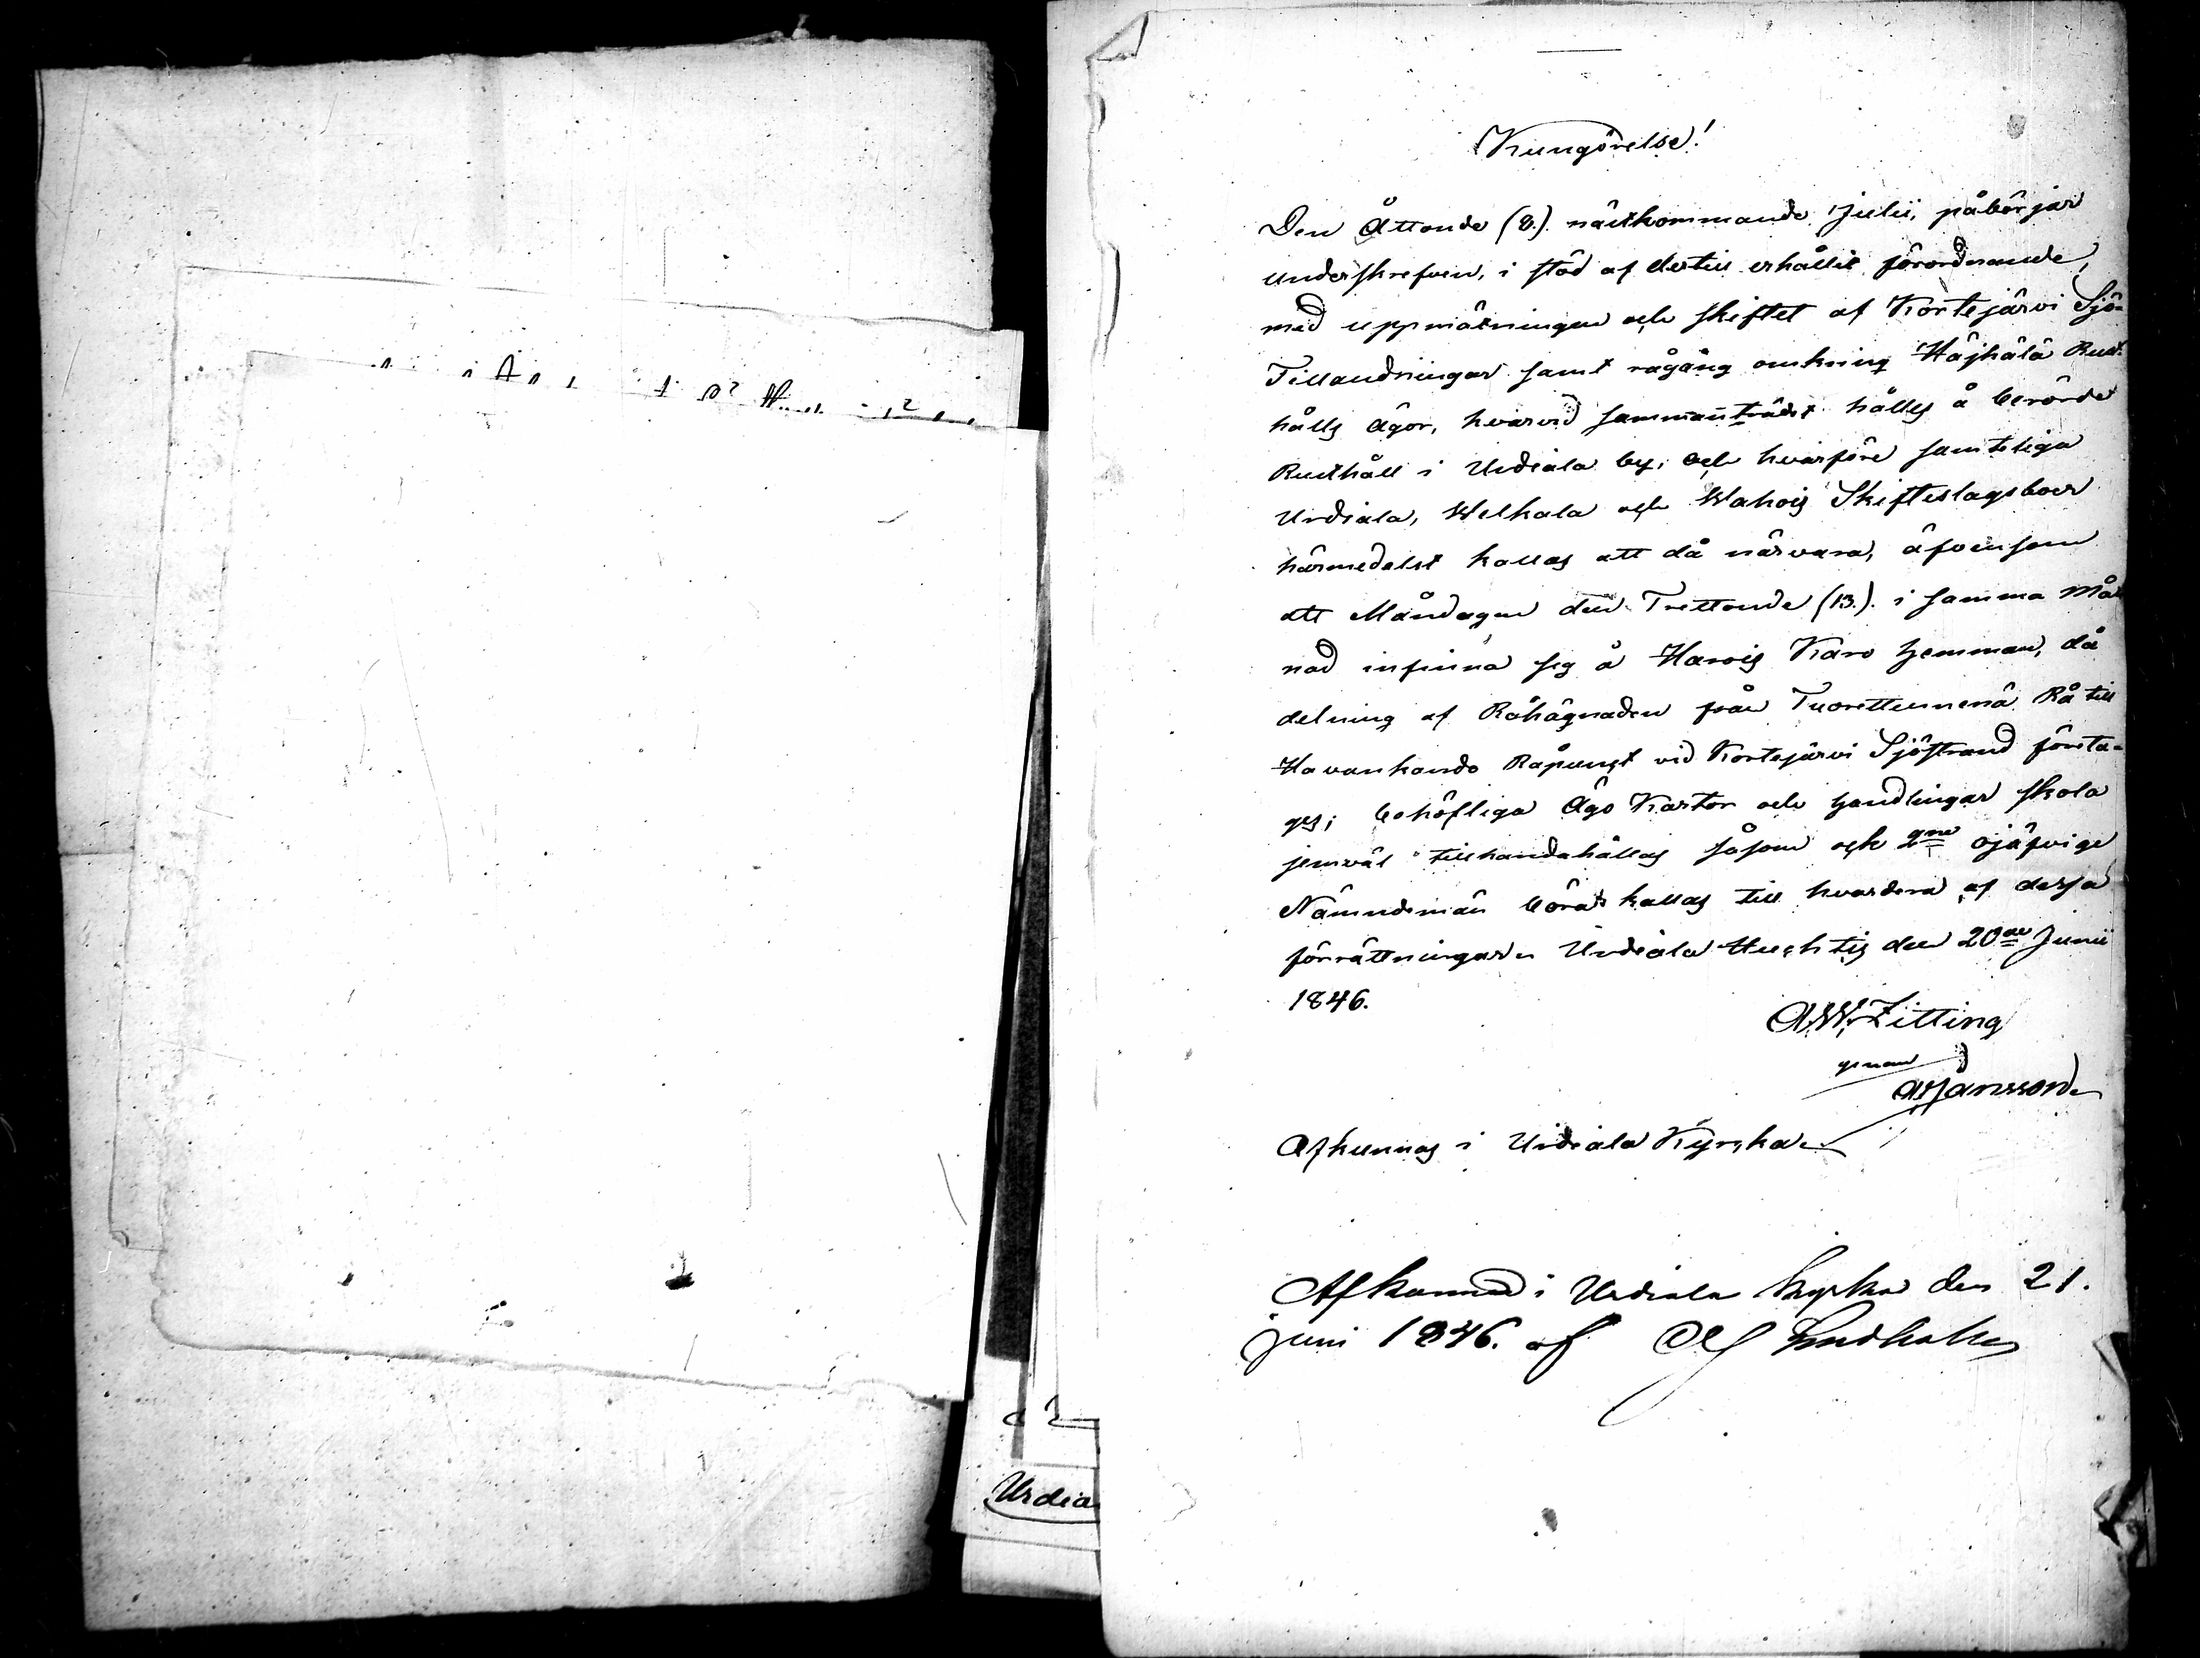 Kungörelse!
Den Åttonde (8.) nästkommande Julii, påbörjar
underskrefven, i stöd af dertill erhållit förordnande,
med uppmätningen och skiftet af Kortejärvi Sjö-
Tillandningar samt rågång omkring Häjhälä Rust-
hålls ägor, hvarvid sammanträdet hålles å berörde
Rusthåll i Urdiala by; och hvarföre samteliga
Urdiala, Welkala och Wahois Skifteslagsboer
härmedelst kallas att då närvara, äfvensom
att Måndagen den Trettonde (13.) i samma Må-
nad infinna sig å Harois Karo hemman, då
delning af Råhägnaden från Tuorettunnenä Rå till
Havankando Råpunct vid Kortejärvi Sjöstrand företa-
ges; behöfliga Ägo Kartor och handlingar skola
jemväl tillhandahållas såsom och 2ne ojäfvige
Nämndemän böra kallas till hvardera af dessa
förrättningar. Urdiala Huchtis den 20de Junii
1846.
A.W. Zitting
genom
Jansson
Afkunnas i Urdiala Kyrcka.
Afkunnad i Urdiala kyrka den 21.
juni 1846. af Lindholm
Urdia